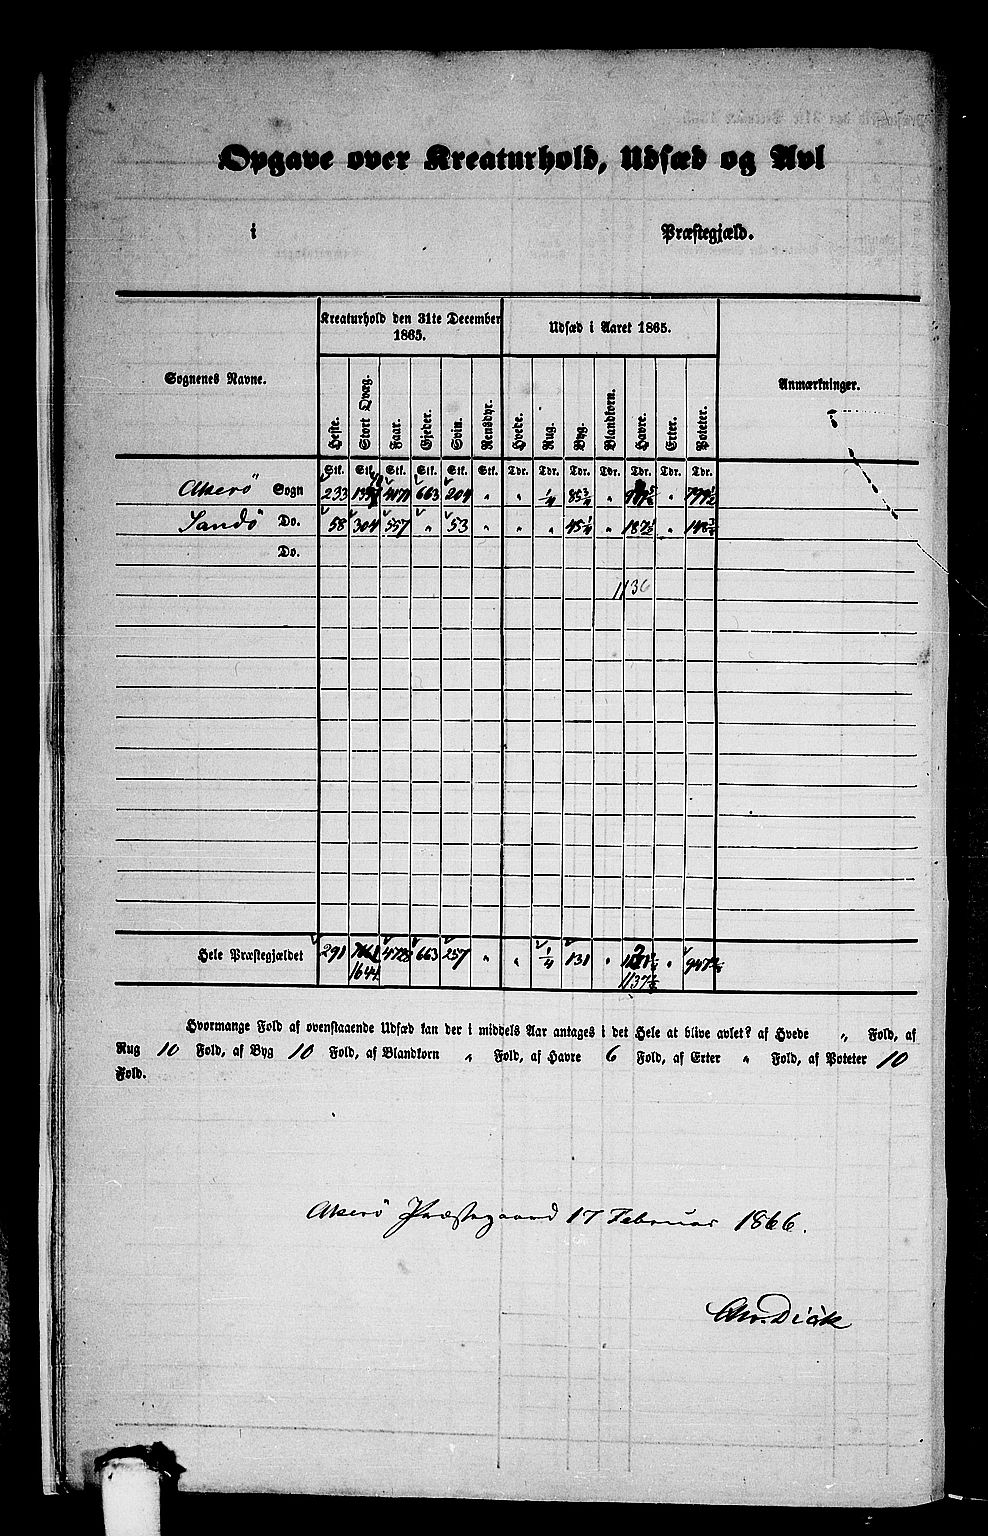 Opgave over Kreaturhold, Udsæd og Avl
i Præstegjæld.
Kreaturhold den 31te December 1865. Udsæd i Aaret 1865.
Sognenes Navne. Anmærkninger.
Heste. Stort Qvæg. Faar. Gjeder. Svin. Rensdyr. Hvede. Rug. Byg. Blandkorn. Havre. Erter. Poteter.
Stk. Stk. Stk. Stk. Stk. Stk. Tdr. Tdr. Tdr. Tdr. Tdr. Tdr. Tdr.
Akerö Sogn 233 663 204 " " 1/4 85 3/4 " " 799 1/2
Sandö Do. 58 304 557 " 53 " " " 45 1/4 " 187 1/2 " 148 3/4
Do.
1136
Hele Præstegjældet 291 663 257 " " 1/4 131 "
1644
Hvormange Fold af ovenstaaende Udsæd kan der i middels Aar antages i det Hele at blive avlet? af Hvede " Fold, af
Rug 10 Fold, af Byg 10 Fold, af Blandkorn " Fold, af Havre 6 Fold, af Erter " Fold, af Poteter 10
Fold.
Akerö Præstegaard 17 Februar 1866.
Chr. Dick